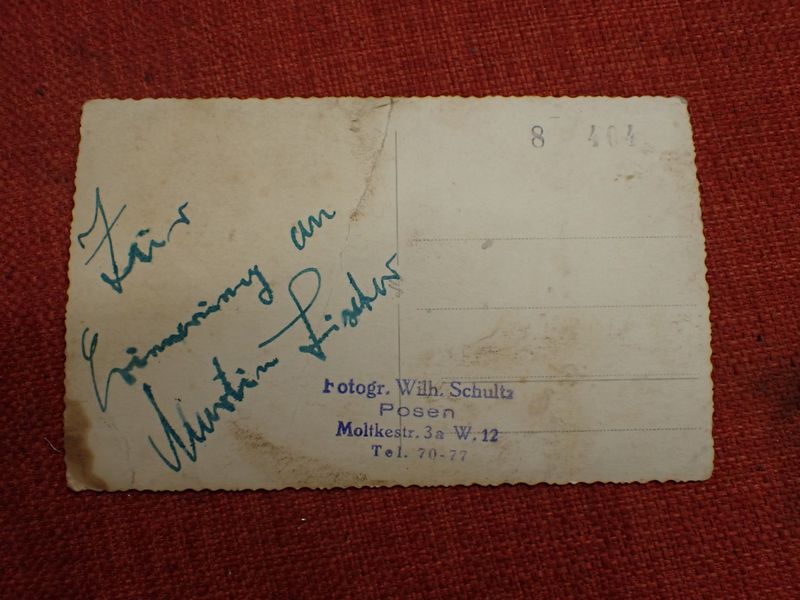 Zur
Erinnerung an
Martin Fischer
8 404
Fotogr. Wilh. Schultz
Posen
Moltkestr. 3a W. 12
Tel. 70-77